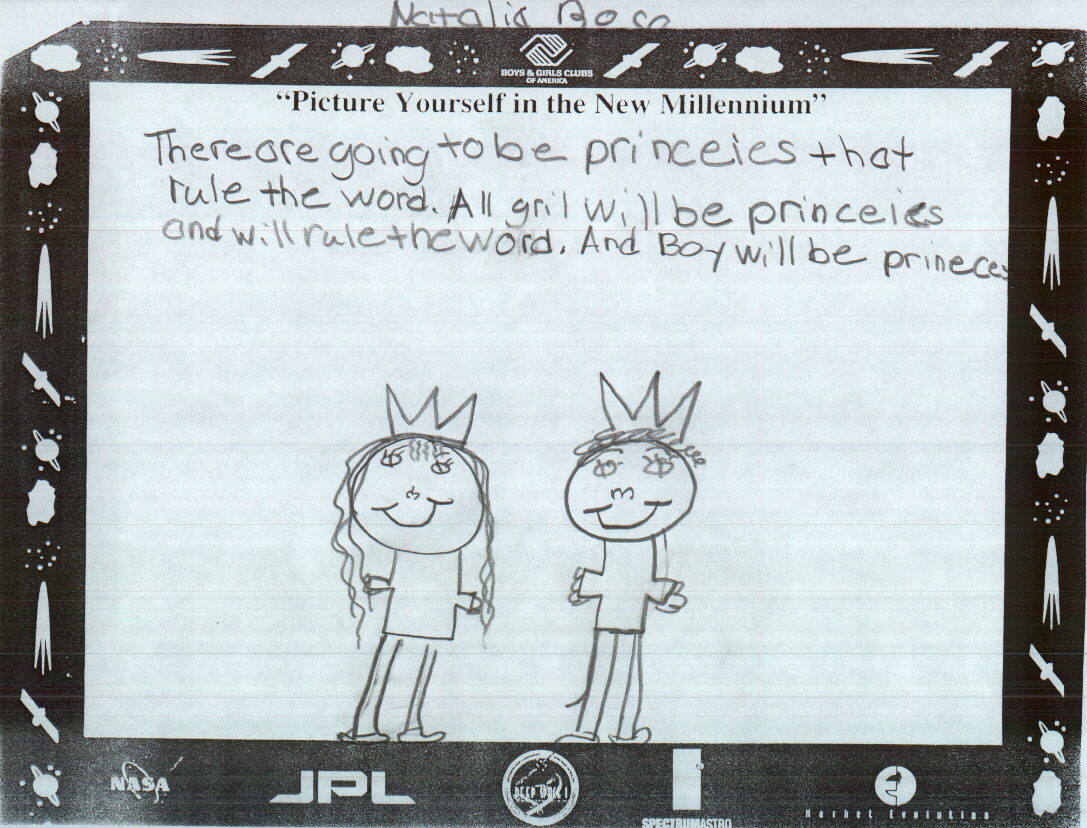 Natalie
BOYS & GIRLS CLUBS
OF AMERICA
“Picture Yourself in the New Millennium”
There are going to be princeies that
rule the word. All gril will be princeies
and will rule the word. And Boy will be princes
NASA
JPL
DEEP SPACE 1
SPECTRUMASTRO
Market Evolution